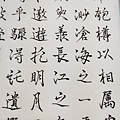 匏樽以相屬
渺滄海之一
臾羨長江之
遨遊抱明月
乎驟得託遺